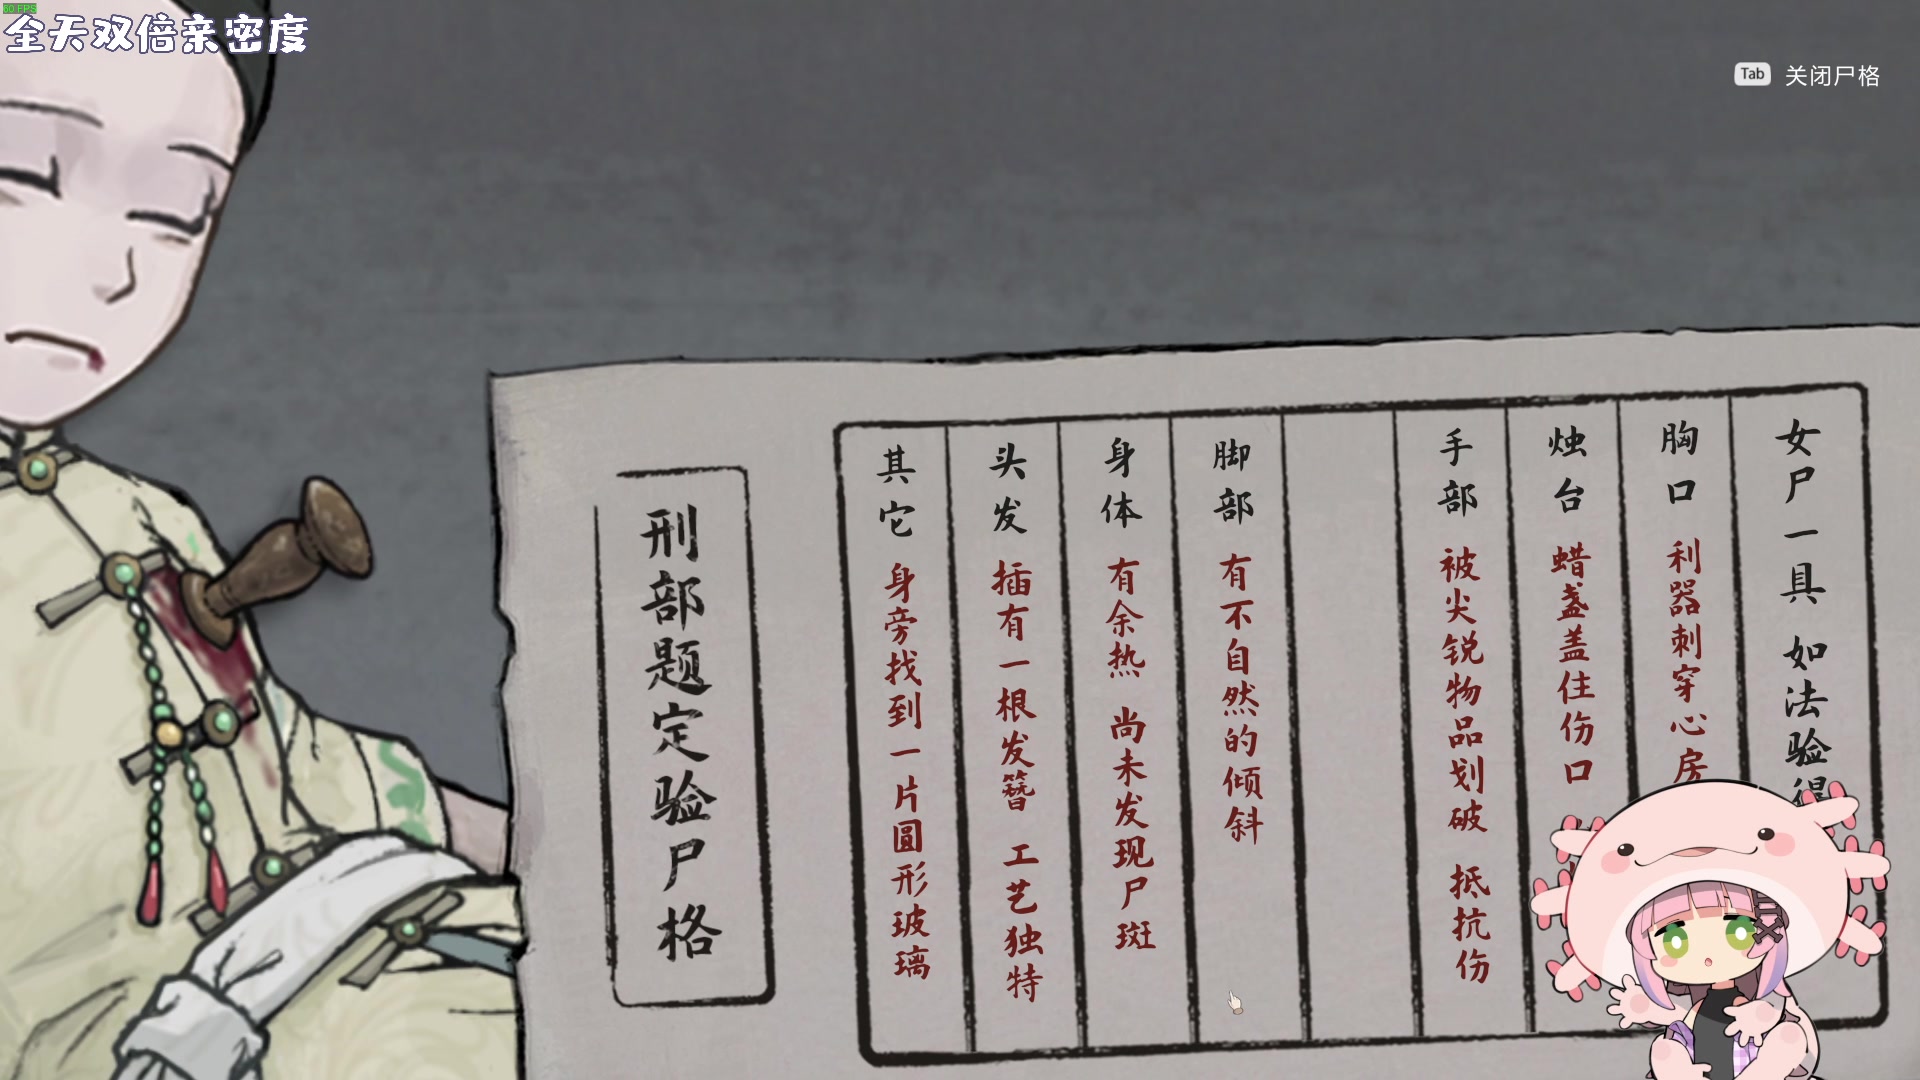 60 FPS
全天双倍亲密度
Tab 关闭尸格
女尸一具 如法验得
胸口 利器刺穿心房
烛台 蜡盏盖住伤口
手部 被尖锐物品划破 抵抗伤
脚部 有不自然的倾斜
身体 有余热 尚未发现尸斑
头发 插有一根发簪 工艺独特
其它 身旁找到一片圆形玻璃
刑部题定验尸格